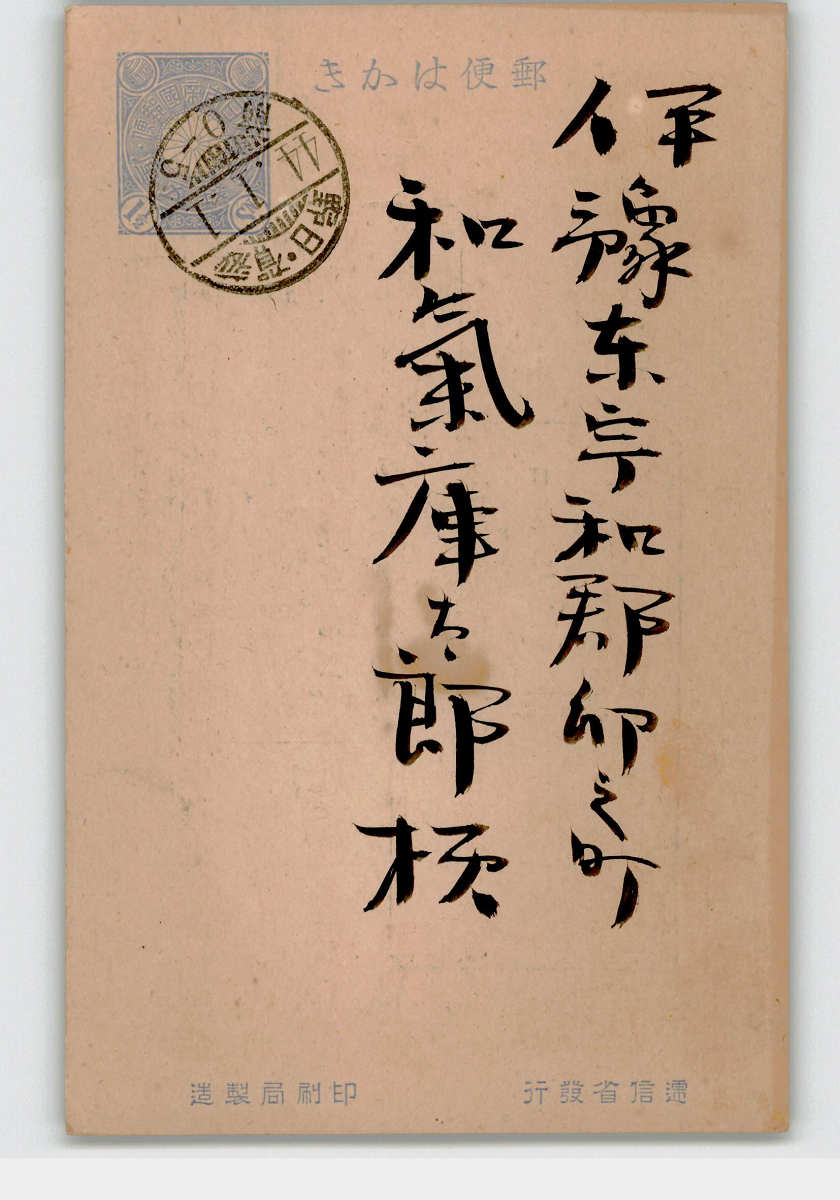 郵便はかき
伊豫東宇和郡卯之町
和氣庫太郎様
44.1.1
日野
賀
0-5
遞信省發行
印刷局製造